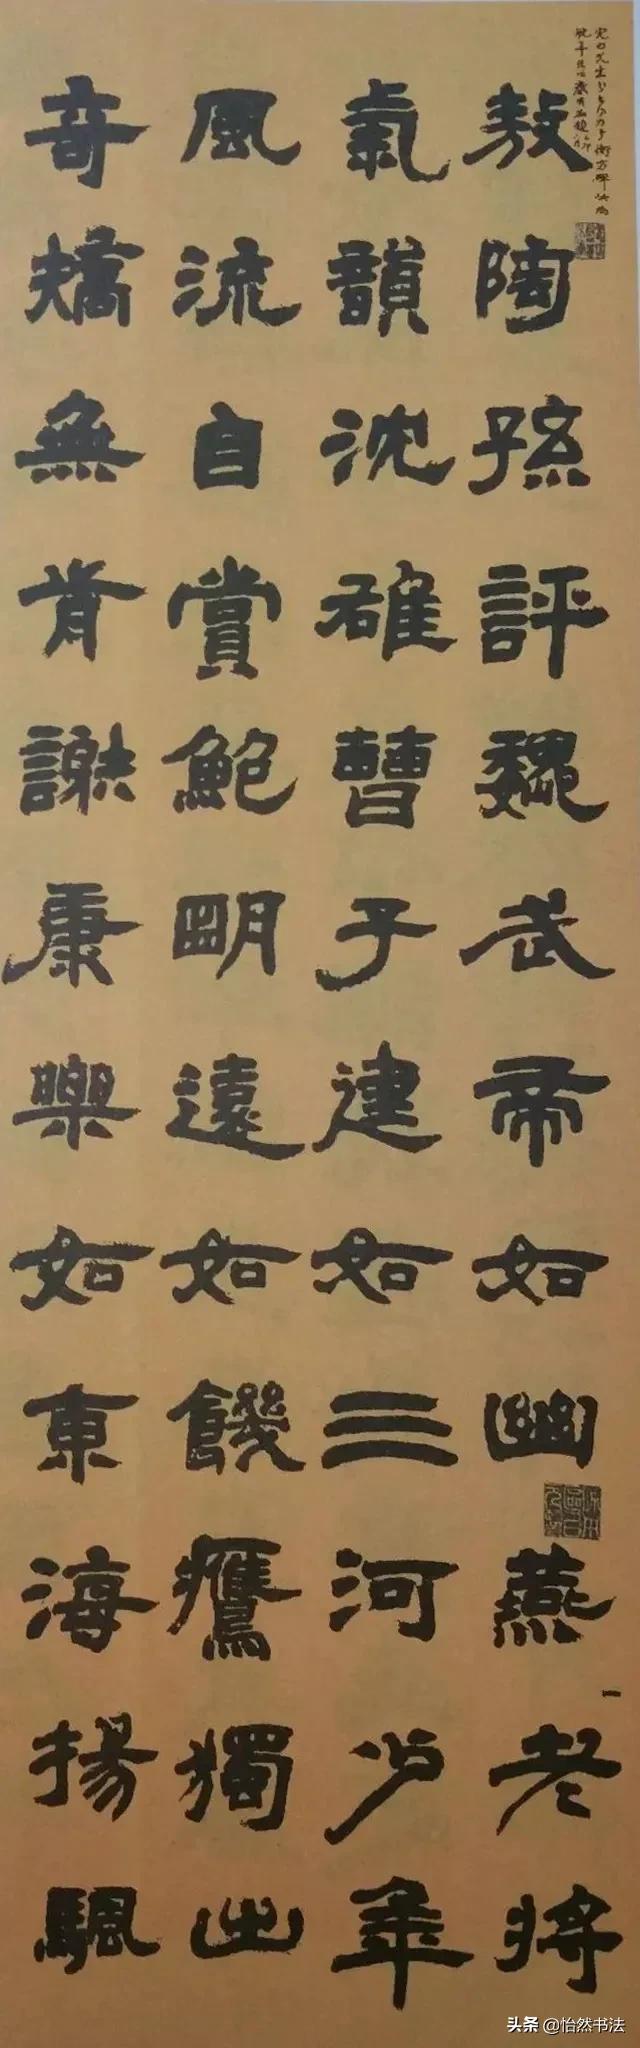 敖陶孫評魏武帝如幽燕老將
氣韻沈雄曹子建如三河少年
風流自賞鮑明遠如饑鷹獨出
奇矯無前謝康樂如東海揚颿
一
头条 @怡然书法